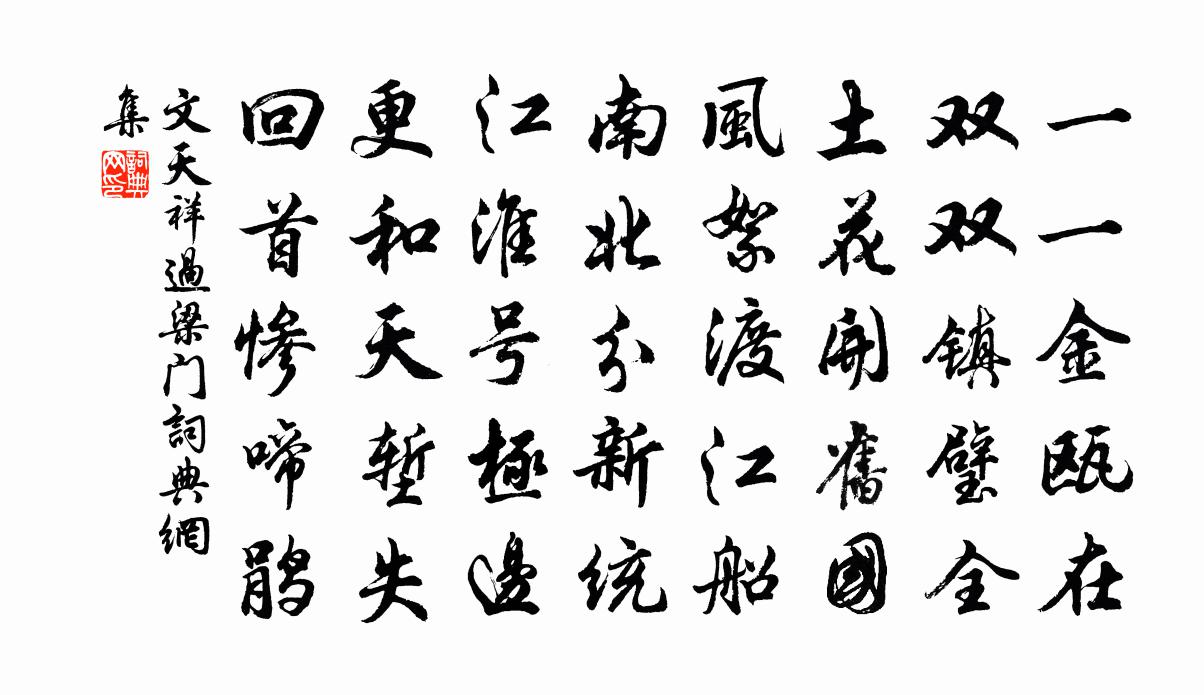 一一金瓯在
双双镇璧全
土花開舊國
風絮渡江船
南北分新统
江淮号極邊
更和天堑失
回首惨啼鹃
文天祥過梁门詞典網
集
詞典网印